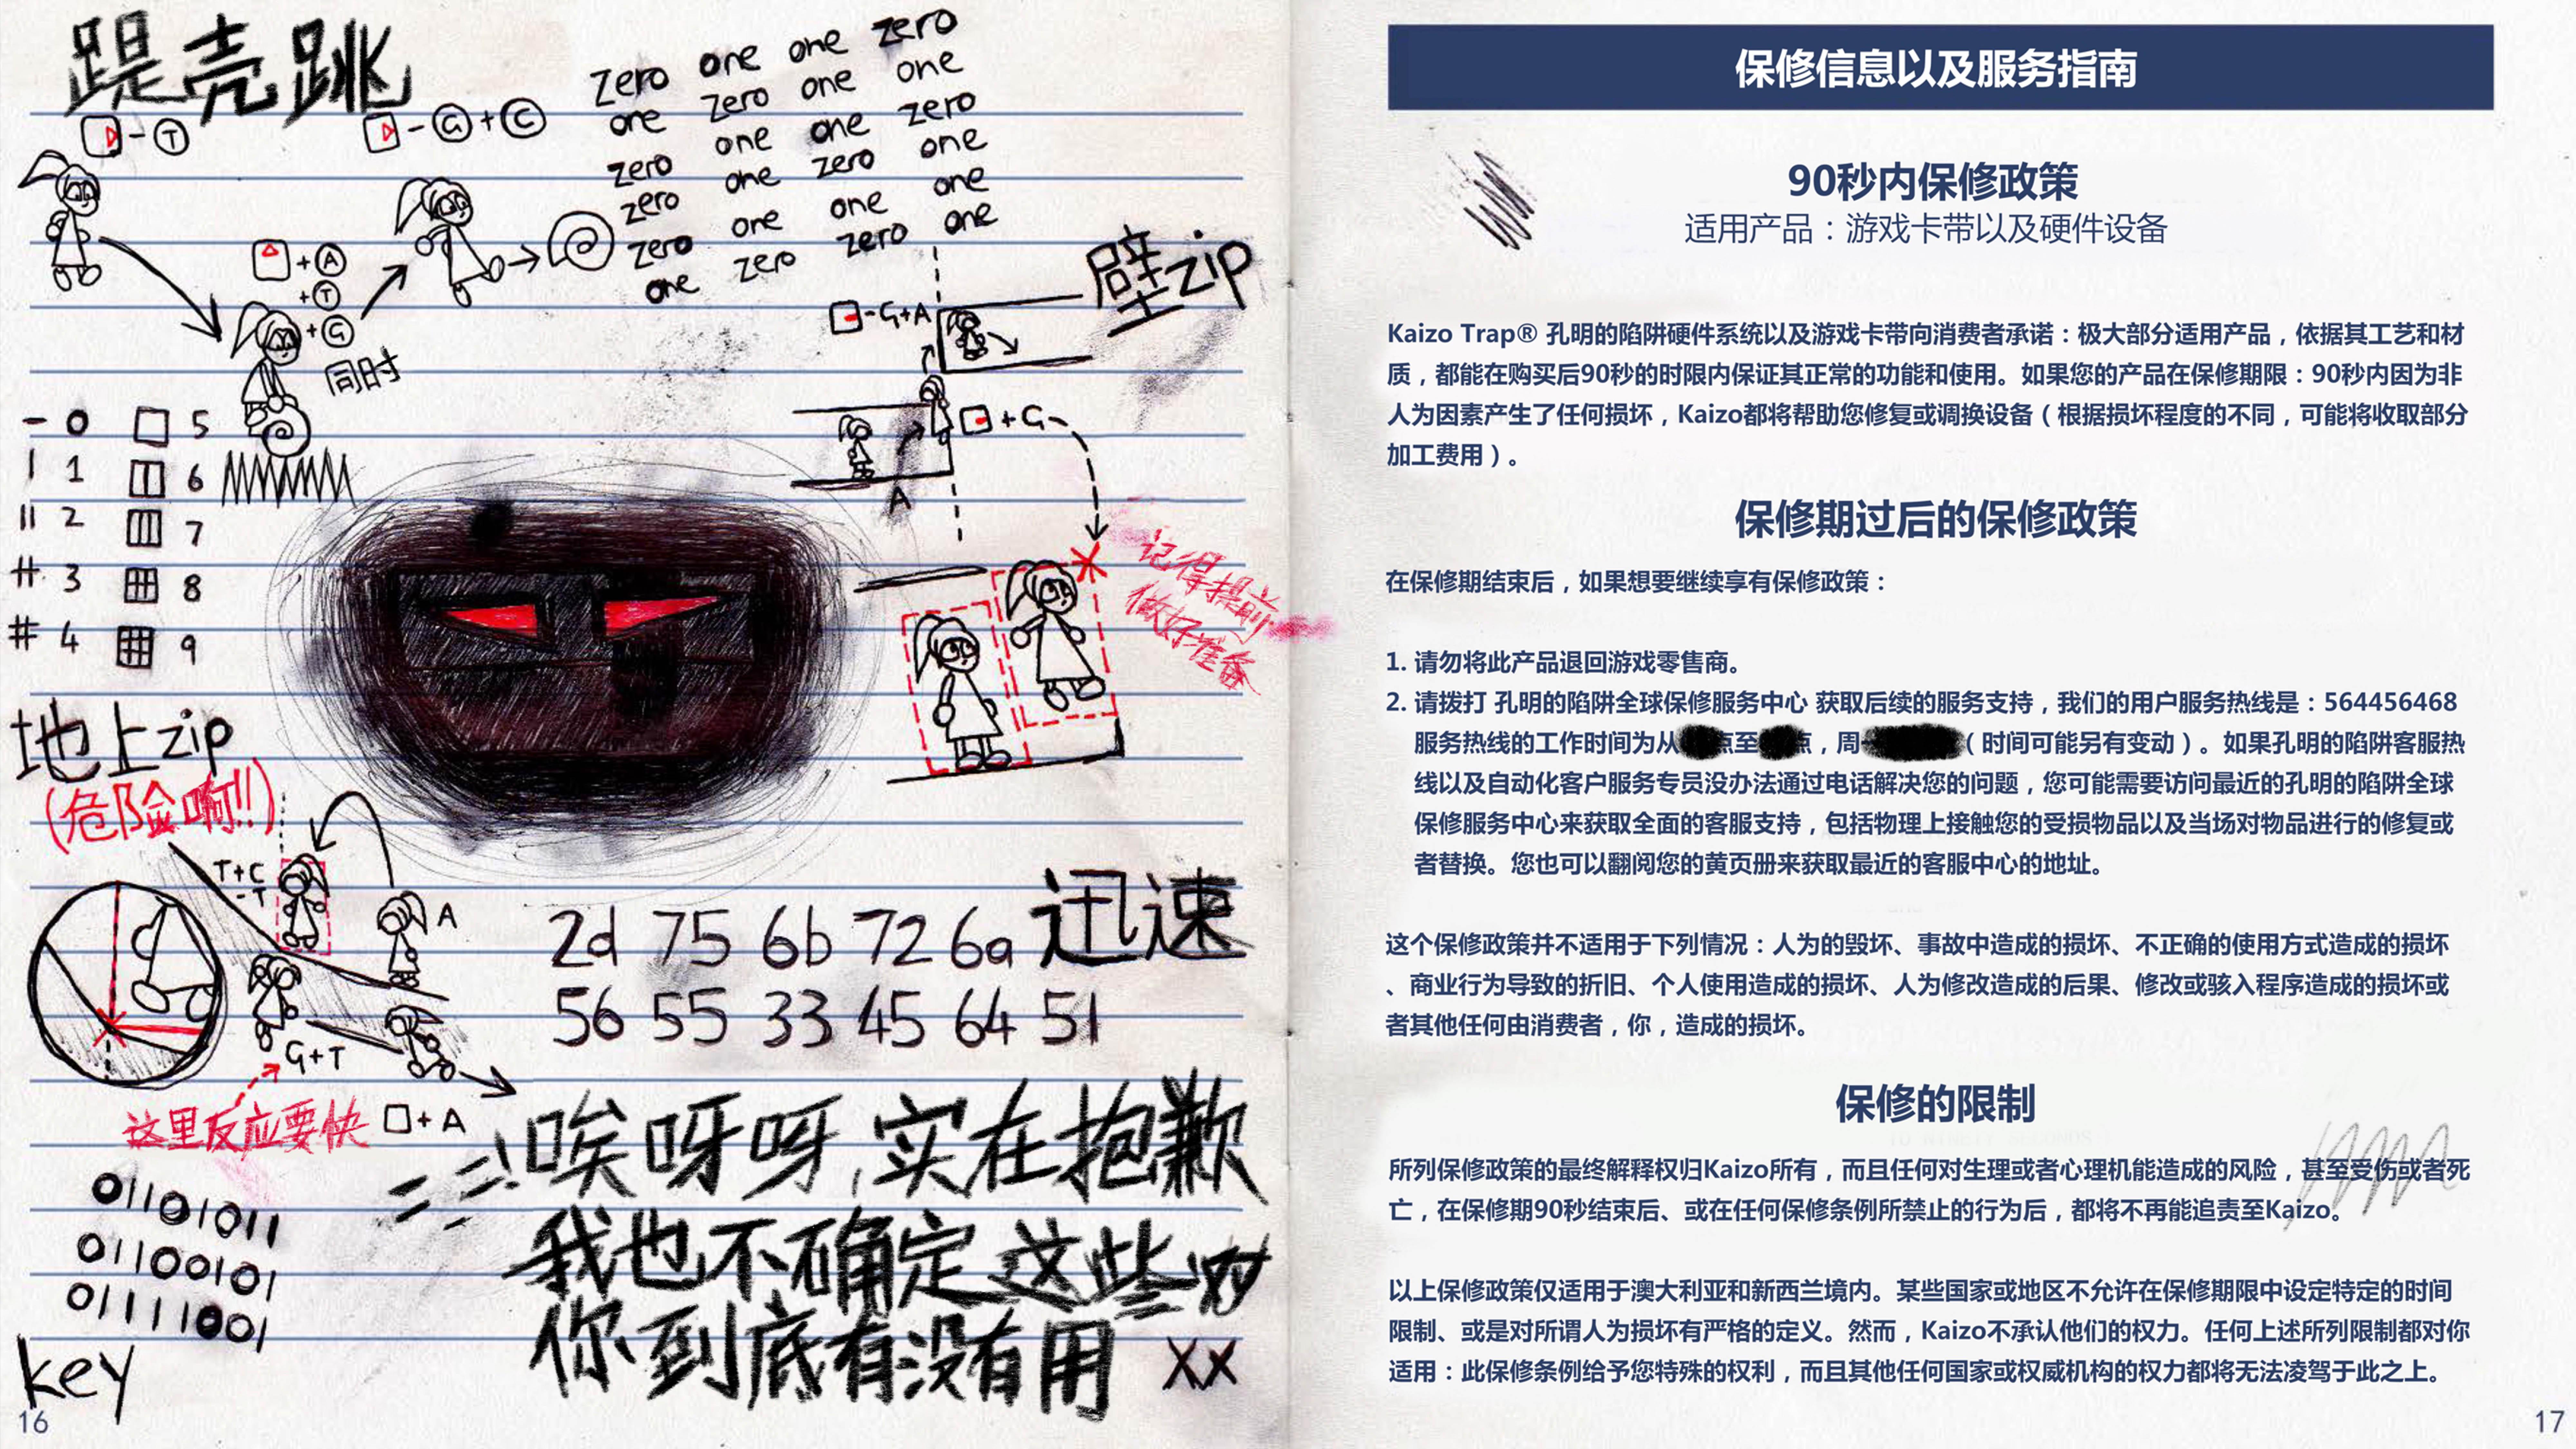 踶壳跳
▷-Ⓣ
▷-Ⓖ+Ⓒ
Zero one one zero
one zero one one
zero one one zero
zero one zero one
zero one one one
one zero zero one
△+Ⓐ
+Ⓣ
+Ⓖ
同时
壁zip
-G+A
+G
A
- 0 □ 5
| 1 6
|| 2 7
3 8
# 4 9
记得提前
做好准备
地上zip
(危险啊!!)
T+C
-T
A
G+T
这里反应要快
□+A
2d 75 6b 72 6a 迅速
56 55 33 45 64 51
唉呀呀,实在抱歉
我也不确定这些对
你到底有没有用 XX
01101011
01100101
01111001
key
16
保修信息以及服务指南
90秒内保修政策
适用产品：游戏卡带以及硬件设备
Kaizo Trap® 孔明的陷阱硬件系统以及游戏卡带向消费者承诺：极大部分适用产品，依据其工艺和材
质，都能在购买后90秒的时限内保证其正常的功能和使用。如果您的产品在保修期限：90秒内因为非
人为因素产生了任何损坏，Kaizo都将帮助您修复或调换设备（根据损坏程度的不同，可能将收取部分
加工费用）。
保修期过后的保修政策
在保修期结束后，如果想要继续享有保修政策：
1. 请勿将此产品退回游戏零售商。
2. 请拨打 孔明的陷阱全球保修服务中心 获取后续的服务支持，我们的用户服务热线是：564456468
服务热线的工作时间为从 点至 点，周 （时间可能另有变动）。如果孔明的陷阱客服热
线以及自动化客户服务专员没办法通过电话解决您的问题，您可能需要访问最近的孔明的陷阱全球
保修服务中心来获取全面的客服支持，包括物理上接触您的受损物品以及当场对物品进行的修复或
者替换。您也可以翻阅您的黄页册来获取最近的客服中心的地址。
这个保修政策并不适用于下列情况：人为的毁坏、事故中造成的损坏、不正确的使用方式造成的损坏
、商业行为导致的折旧、个人使用造成的损坏、人为修改造成的后果、修改或骇入程序造成的损坏或
者其他任何由消费者，你，造成的损坏。
保修的限制
所列保修政策的最终解释权归Kaizo所有，而且任何对生理或者心理机能造成的风险，甚至受伤或者死
亡，在保修期90秒结束后、或在任何保修条例所禁止的行为后，都将不再能追责至Kaizo。
以上保修政策仅适用于澳大利亚和新西兰境内。某些国家或地区不允许在保修期限中设定特定的时间
限制、或是对所谓人为损坏有严格的定义。然而，Kaizo不承认他们的权力。任何上述所列限制都对你
适用：此保修条例给予您特殊的权利，而且其他任何国家或权威机构的权力都将无法凌驾于此之上。
17